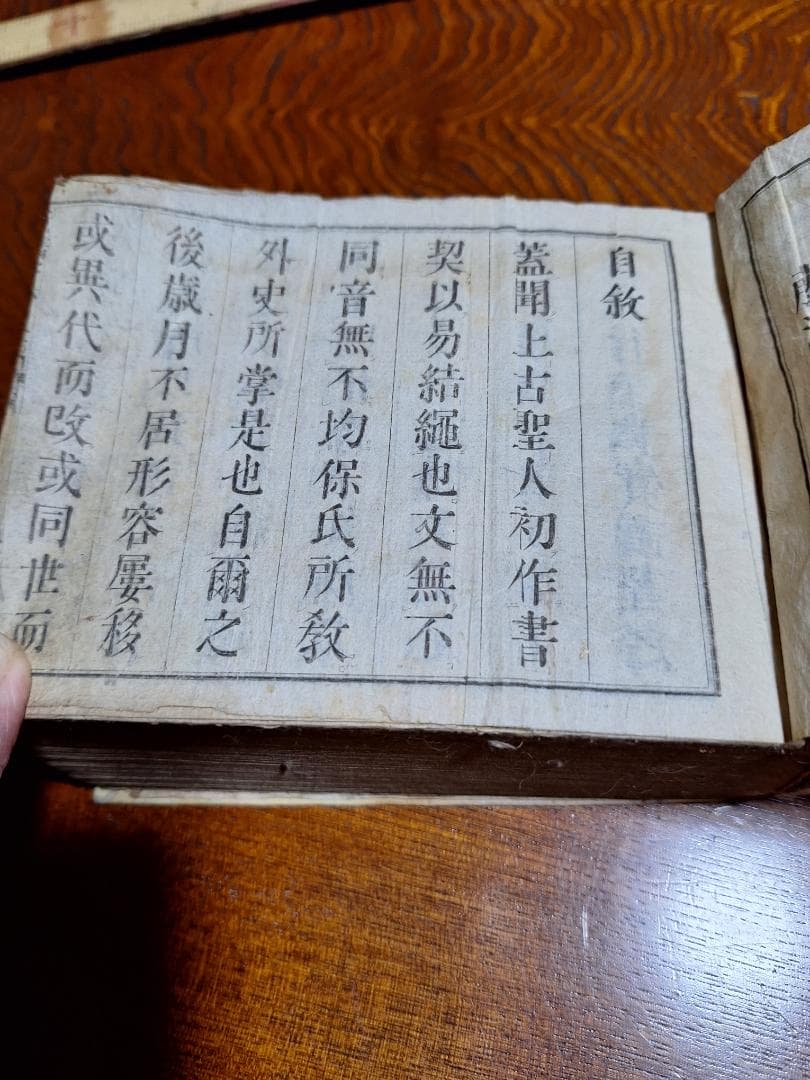 自敘
蓋聞上古聖人初作書
契以易結繩也文無不
同音無不均保氏所教
外史所掌是也自爾之
後歲月不居形容屢移
或異代而改或同世而